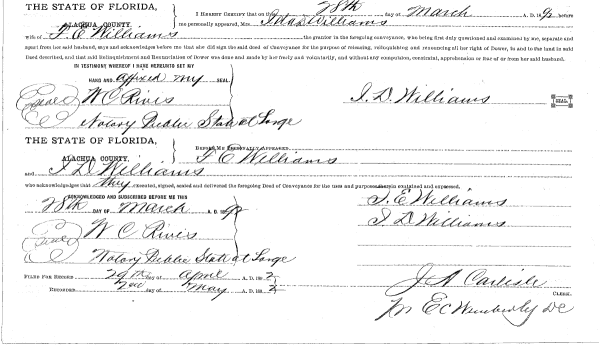 THE STATE OF FLORIDA,
ALACHUA COUNTY.
I HEREBY CERTIFY that on the 28th day of March A. D. 18 92 before
me personally appeared, Mrs. Ida D Williams
wife of F. E. Williams the grantor in the foregoing conveyance, who being first duly questioned and examined by me, separate and
apart from her said husband, says and acknowledges before me that she did sign the said deed of Conveyance for the purpose of releasing, relinquishing and renouncing all her right of Dower, in and to the land in said
Deed described, and that said Relinquishment and Renunciation of Dower was done and made by her freely and voluntarily, and without any compulsion, constraint, apprehension or fear of or from her said husband.
IN TESTIMONY WHEREOF I HAVE HEREUNTO SET MY
HAND AND affixed my SEAL
(Seal) W C Rivers
I. D. Williams SEAL.
Notary Public State at Large
THE STATE OF FLORIDA,
ALACHUA COUNTY.
BEFORE ME PERSONALLY APPEARED F E Williams
and I D Williams
who acknowledges that they executed, signed, sealed and delivered the foregoing Deed of Conveyance for the uses and purposes therein contained and expressed.
ACKNOWLEDGED AND SUBSCRIBED BEFORE ME THIS
28th DAY OF March A. D. 18 92
F. E. Williams
I. D. Williams
(Seal) W C Rivers
Notary Public State at Large
FILED FOR RECORD 29th day of April A. D. 189 2
RECORDED 2nd day of May A. D. 18 2
J A Carlisle CLERK.
Per E C Wimberly DC